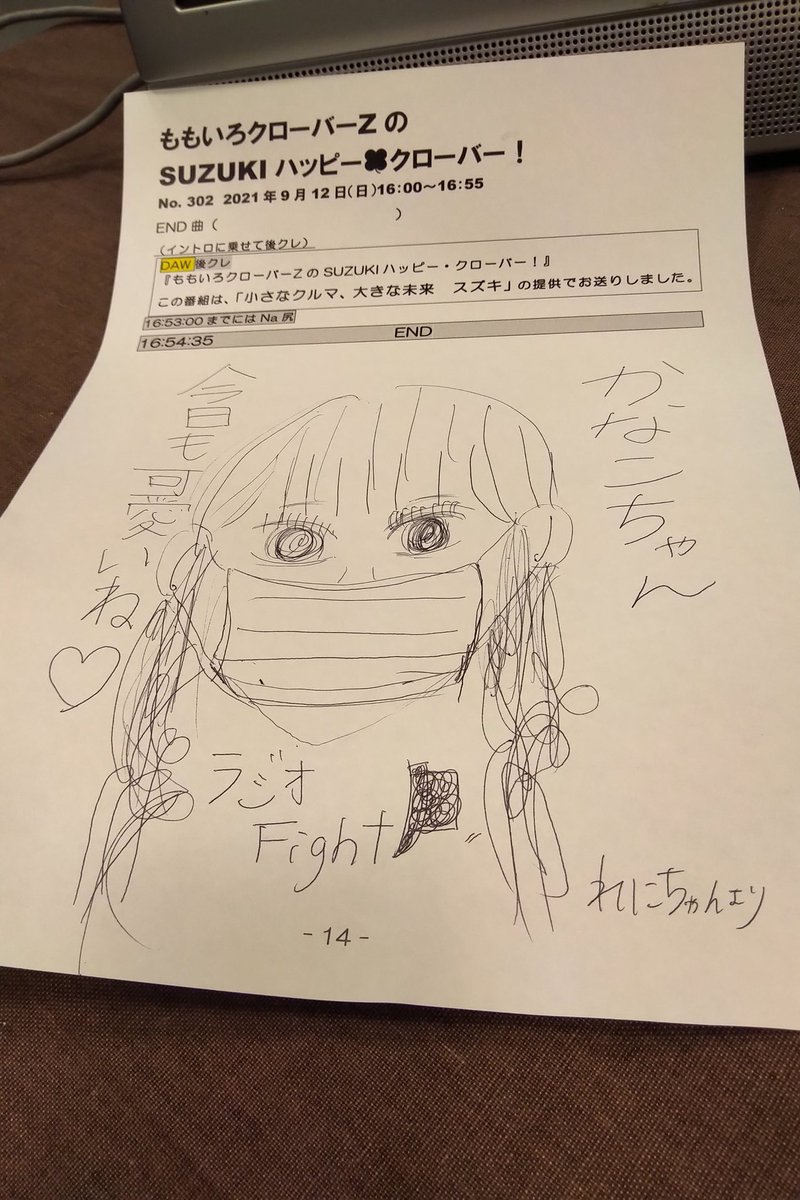 ももいろクローバーZ の
SUZUKI ハッピー🍀クローバー！
No. 302 2021年9月12日(日)16:00～16:55
END 曲（　　　　　　　　　　）
（イントロに乗せて後クレ）
DAW 後クレ
『ももいろクローバーZ の SUZUKI ハッピー・クローバー！』
この番組は、「小さなクルマ、大きな未来　スズキ」の提供でお送りしました。
16:53:00 までには Na 尻
16:54:35 END
かなこちゃん
今日も可愛いね♡
ラジオ
Fight
れにちゃんより
- 14 -